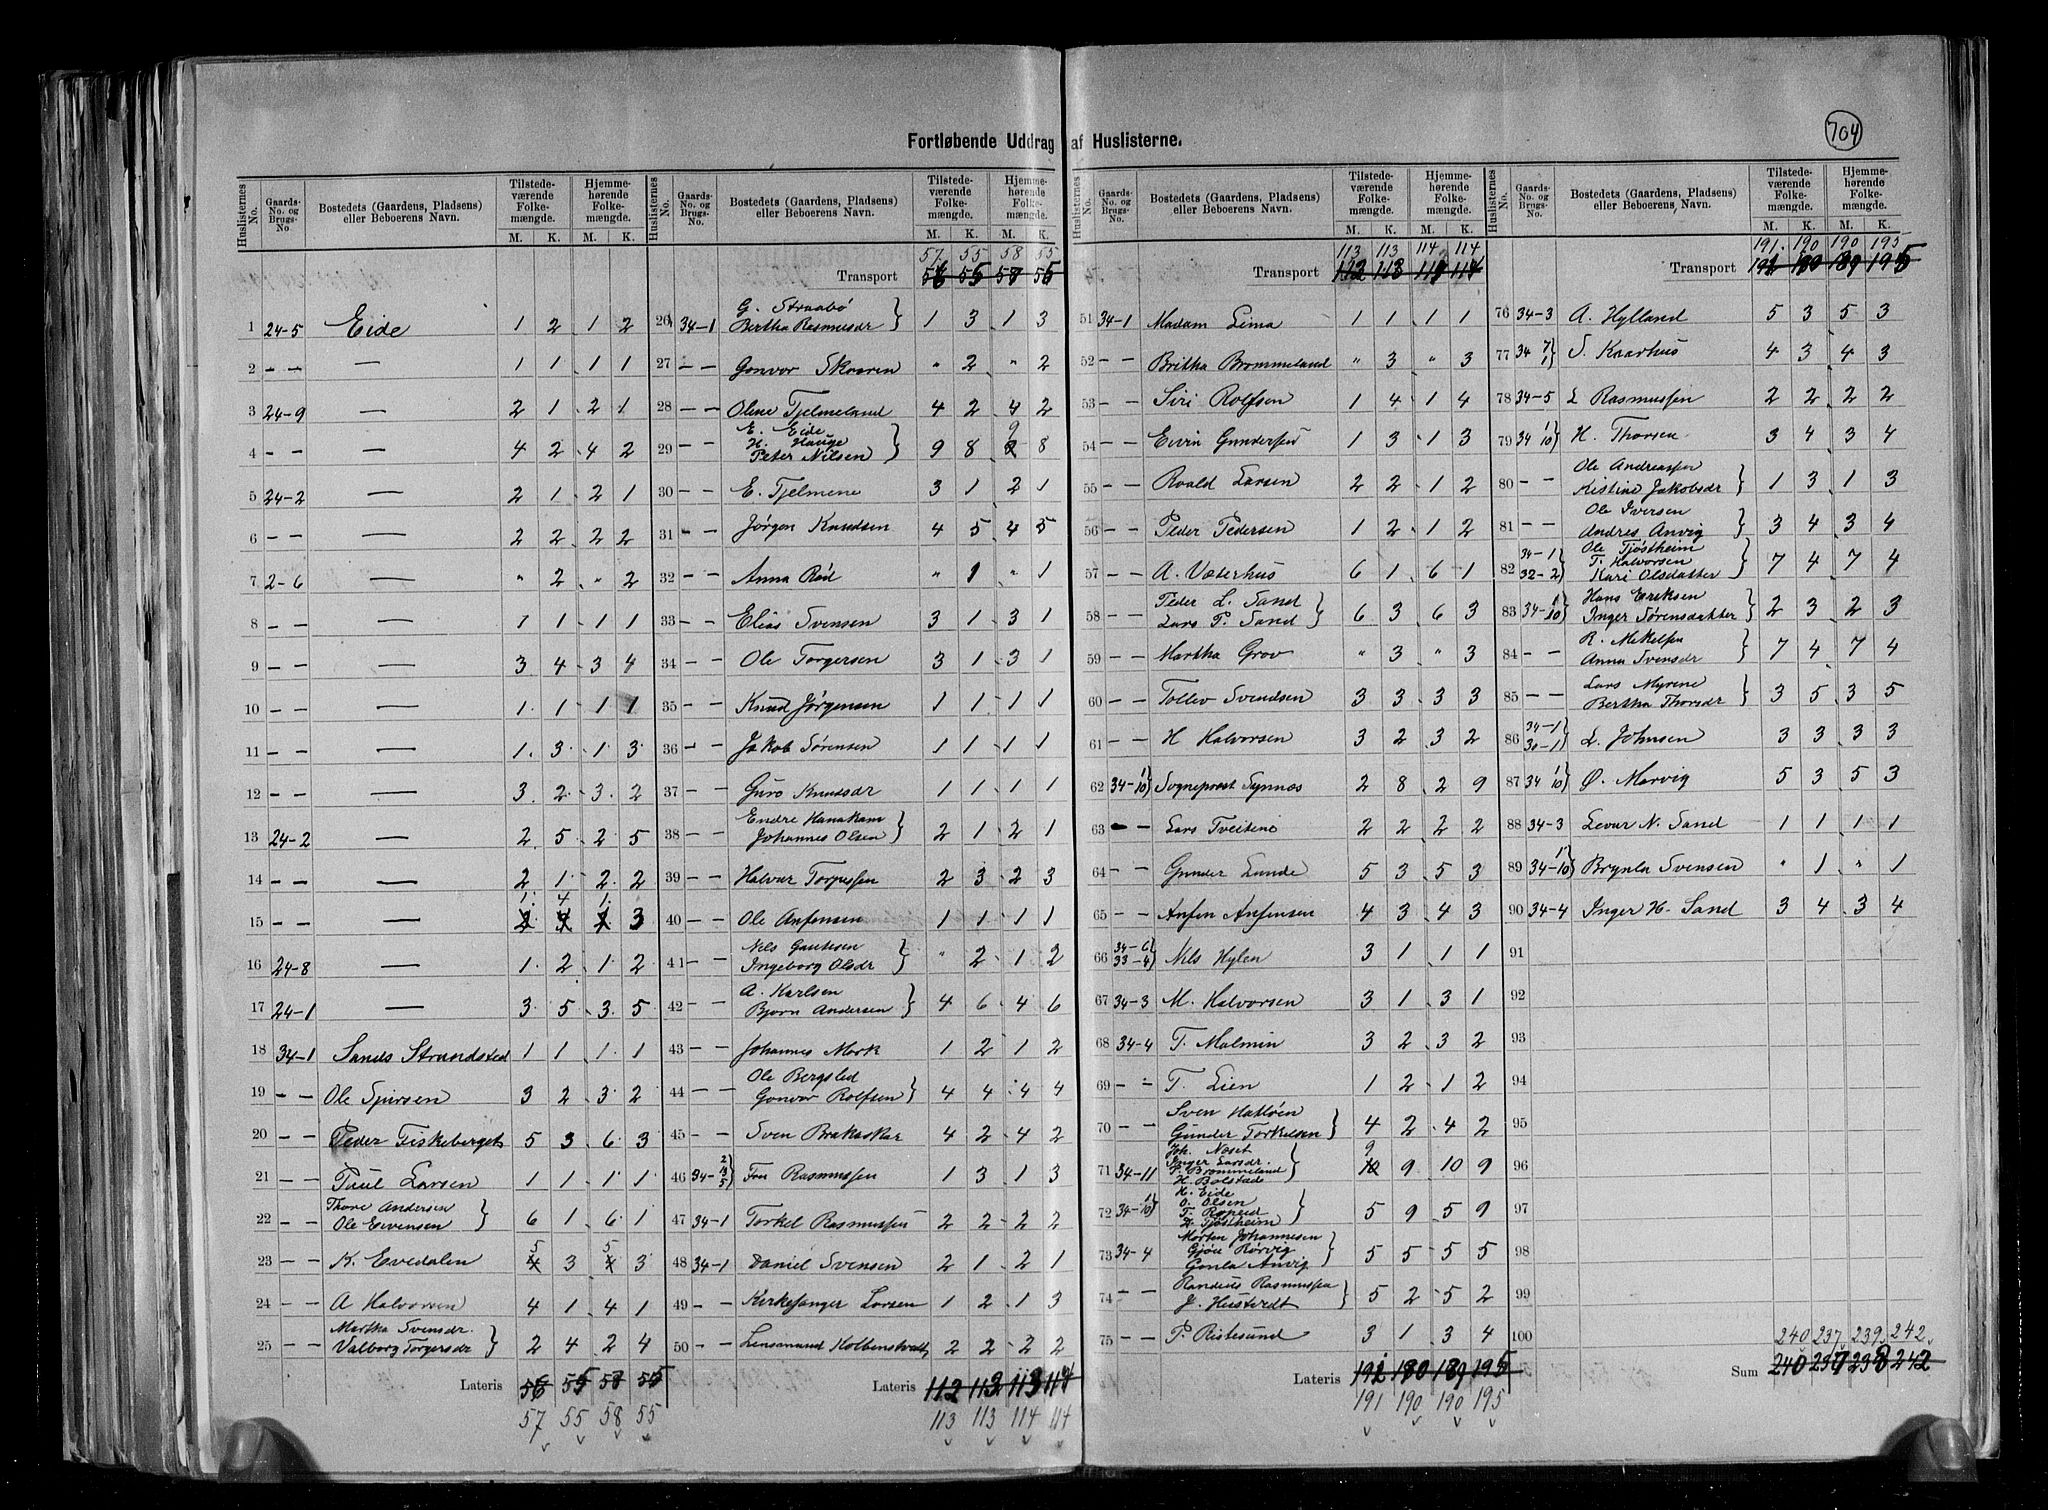 704
Fortløbende Uddrag af Huslisterne.
Huslisternes No. | Gaards-No. og Brugs-No. | Bostedets (Gaardens, Pladsens) eller Beboerens Navn. | Tilstedeværende Folkemængde. M. K. | Hjemmehørende Folkemængde. M. K.
1 24-5 Eide 1 2 1 2
2 - - — 1 1 1 1
3 24-9 — 2 1 2 1
4 - - — 4 2 4 2
5 24-2 — 2 1 2 1
6 - - — 2 2 2 2
7 2-6 — " 2 " 2
8 - - — 1 1 1 1
9 - - — 3 4 3 4
10 - - — 1 1 1 1
11 - - — 1 3 1 3
12 - - — 3 2 3 2
13 24-2 — 2 5 2 5
14 - - — 2 1 2 2
15 - - — 1 4 1 3
16 24-8 — 1 2 1 2
17 24-1 — 3 5 3 5
18 34-1 Sands Strandsted 1 1 1 1
19 - - Ole Spirsen 3 2 3 2
20 - - Peder Fiskeberget 5 3 6 3
21 - - Paul Larsen 1 1 1 1
22 - - Thore Andersen
Ole Eivensen } 6 1 6 1
23 - - K. Evedalen 5 3 5 3
24 - - A Halvorsen 4 1 4 1
25 - - Martha Svensdr.
Valborg Torgersdr } 2 4 2 4
Lateris 56 55 57 55
57 55 58 55
57 55 58 55
Transport 56 55 57 55
26 34-1 G. Straabø
Bertha Rasmusdr } 1 3 1 3
27 - - Gonvor Skaaren " 2 " 2
28 - - Oline Tjelmeland 4 2 4 2
29 - - E. Eide
H. Hauge
Peter Nilsen } 9 8 9 8
30 - - E. Tjelmene 3 1 2 1
31 - - Jørgen Knudsen 4 5 4 5
32 - - Anna Rød " 1 " 1
33 - - Elias Svensen 3 1 3 1
34 - - Ole Torgersen 3 1 3 1
35 - - Knud Jørgensen 1 1 1 1
36 - - Jakob Sørensen 1 1 1 1
37 - - Guro Knudsdr 1 1 1 1
38 - - Endre Hanakam
Johannes Olsen } 2 1 2 1
39 - - Halvar Torpessen 2 3 2 3
40 - - Ole Anfensen 1 1 1 1
41 - - Nils Gautesen
Ingeborg Olsdr } " 2 1 2
42 - - A. Karlsen
Bjørn Andersen } 4 6 4 6
43 - - Johannes Mork 1 2 1 2
44 - - Ole Bergslid
Gonvor Rolfsen } 4 4 4 4
45 - - Sven Brakaskar 4 2 4 2
46 34- 2 13 5 } Fru Rasmussen 1 3 1 3
47 34-1 Torkel Rasmussen 2 2 2 2
48 34-1 Daniel Svensen 2 1 2 1
49 - - Kirkesanger Larsen 1 2 1 3
50 - - Lensmand Kolbenstvedt 2 2 2 2
Lateris 112 113 113 114
113 113 114 114
113 113 114 114
Transport 112 113 113 114
51 34-1 Madam Lima 1 1 1 1
52 - - Britha Brommeland " 3 " 3
53 - - Siri Rolfsen 1 4 1 4
54 - - Eivin Gundersen 1 3 1 3
55 - - Roald Larsen 2 2 1 2
56 - - Peder Pedersen 1 2 1 2
57 - - A. Væterhus 6 1 6 1
58 - - Peder L. Sand
Lars P. Sand } 6 3 6 3
59 - - Martha Grov " 3 " 3
60 - - Tollev Svendsen 3 3 3 3
61 - - H Halvorsen 3 2 3 2
62 34- 1 10 } Sogneprest Synnæs 2 8 2 9
63 - - Lars Tveiteno 2 2 2 2
64 - - Gunder Lunde 5 3 5 3
65 - - Anfin Anfinsen 4 3 4 3
66 34-6
33-4 } Nils Hylen 3 1 1 1
67 34-3 M. Halvorsen 3 1 3 1
68 34-4 T. Malmin 3 2 3 2
69 - - T. Lien 1 2 1 2
70 - - Sven Hatløen
Gunder Torkelsen } 4 2 4 2
71 34-11 Joh. Næset
Inger Larsdr.
P. Brommeland
H. Bolstad } 9 9 10 9
72 34- 1 10 } H. Eide
O. Olsen
D. Tjøstheim } 5 9 5 9
73 34-4 Morten Johannesen
Gjøre Rørvig
Gonla Anvig } 5 5 5 5
74 - - Randeus Rasmussen
J. Husterdt } 5 2 5 2
75 - - P. Ristesund 3 1 3 4
Lateris 192 190 189 195
191 190 190 195
191 190 190 195
Transport 192 190 189 195
76 34-3 A. Hylland 5 3 5 3
77 34 7 1 } S. Kaarhus 4 3 4 3
78 34-5 L Rasmussen 2 2 2 2
79 34 1 10 } H. Thorsen 3 4 3 4
80 - - Ole Andreassen
Kistine Jakobsdr } 1 3 1 3
81 - - Ole Iversen
Andres Anvig } 3 4 3 4
82 34-1
32-2 } Ole Tjøstheim
T. Halvorsen
Kari Olsdatter } 7 4 7 4
83 34- 1 10 } Hans Eriksen
Inger Sørensdatter } 2 3 2 3
84 - - R. Mekelsen
Anna Svensdr } 7 4 7 4
85 - - Lars Myrene
Bertha Thorsdr } 3 5 3 5
86 34-1
30-1 } L. Johnsen 3 3 3 3
87 34 1 10 } Ø. Marvig 5 3 5 3
88 34-3 Levar N. Sand 1 1 1 1
89 34- 1 10 } Brynla Svensen " 1 " 1
90 34-4 Inger H. Sand 3 4 3 4
91
92
93
94
95
96
97
98
99
100
240 237 239 242
Sum 240 237 238 242